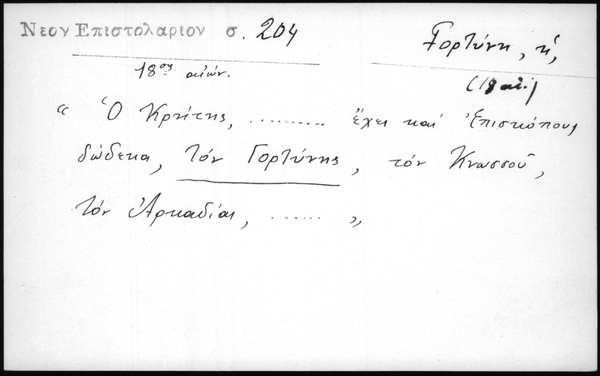 Νεον Επιστολαριον σ. 204
Γορτύνη, ἡ,
18ος αἰών.
(18 αἰ.)
“ Ὁ Κρήτης, .......... ἔχει καί Ἐπισκόπους
δώδεκα, τόν Γορτύνης, τόν Κνωσσοῦ,
τόν Ἀρκαδίας, ...... „